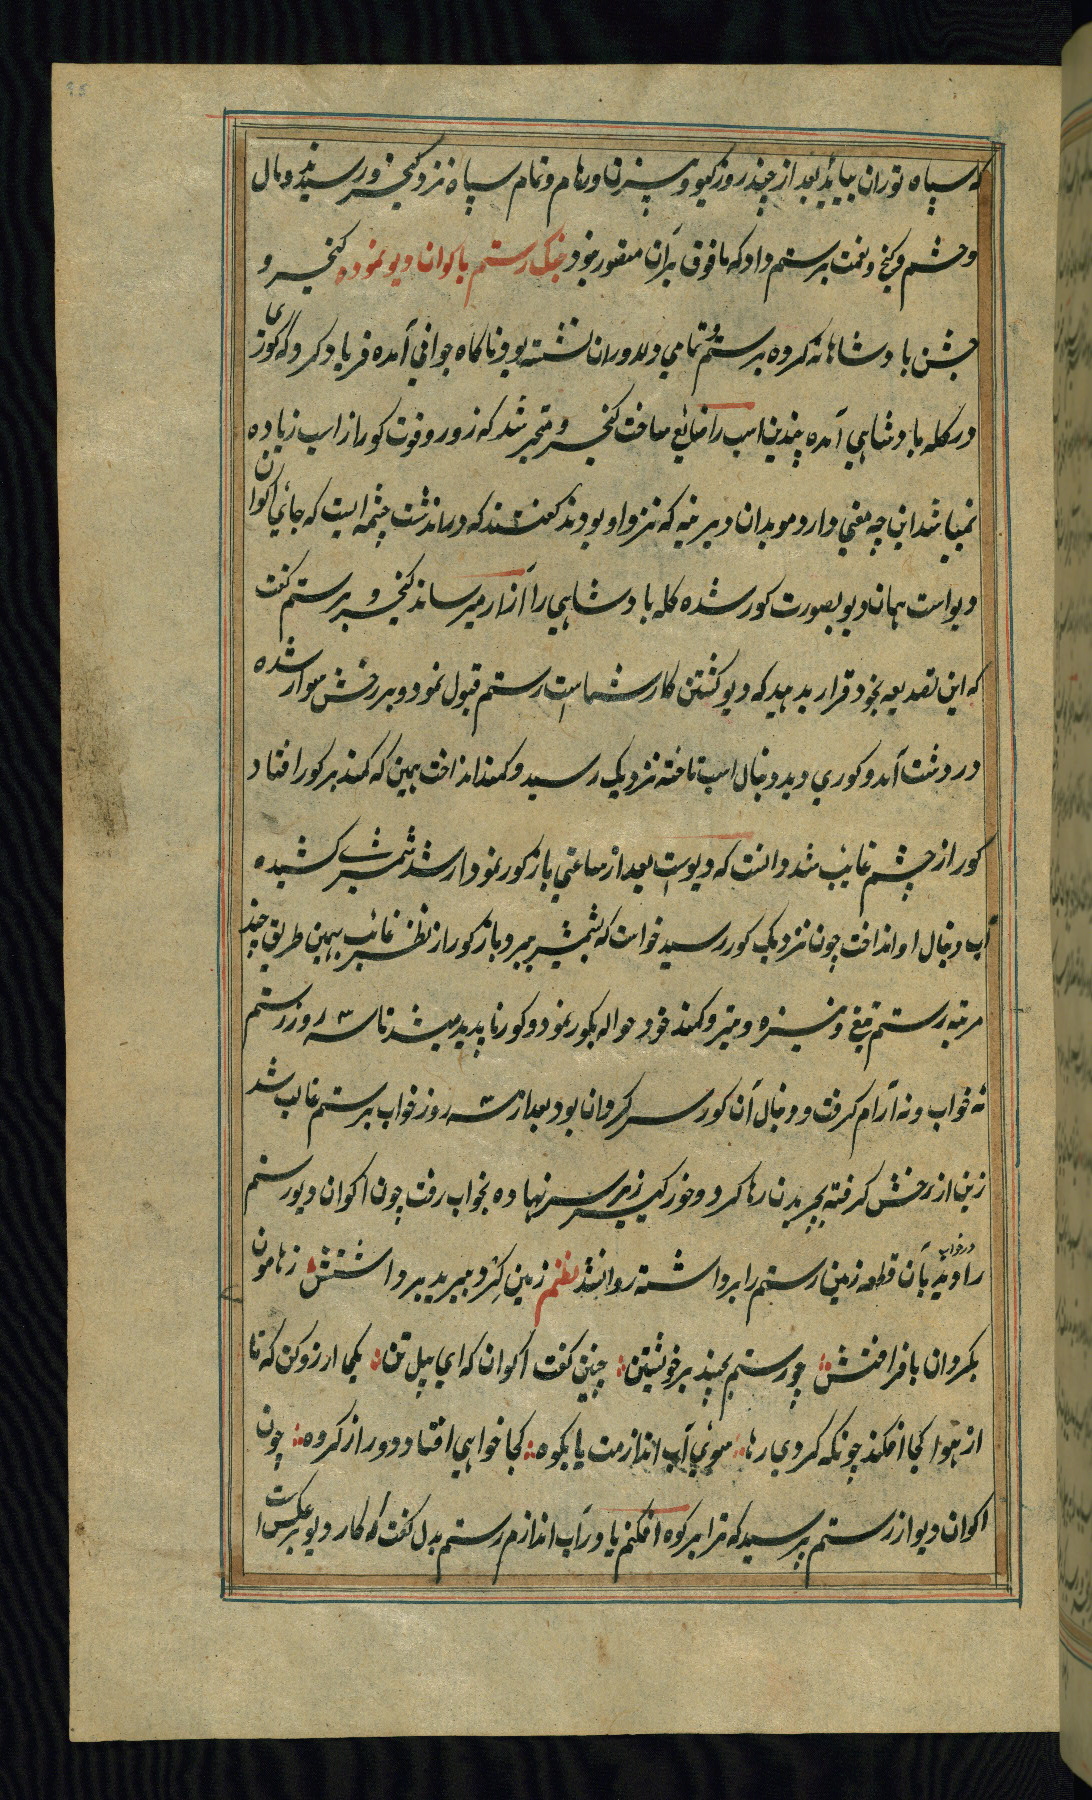 که سپاه توران بیاید بعد از چند روز گیو و بیژن و رهام و تمام سپاه نزد کیخسرو رسیدند و مال
و حشم و گنج و نعمت برستم داد که مافوق بر آن متصور نبود جنگ رستم با اکوان دیو نموده کیخسرو
جشن بادشاهانه کرده برستم و تمامی دلاوران نشسته بود ناگاه جوانی آمده فریاد کرد که گوری
در گله بادشاهی آمده چندین اسب را ضائع ساخت کیخسرو متحیر شد که زور و قوت گور از اسب زیاده
نمیباشد این چه معنی دارد موبدان دیرینه که نزد او بودند گفتند که در آن دشت چشمه ایست که جای اکوان
دیو است همان دیو بصورت گور شده گله بادشاهی را آزار میرساند کیخسرو برستم گفت
که این تصدیعه بخود قرار بدهید که دیو کشتن کار شماست رستم قبول نمود و بر رخش سوار شده
در دشت آمد و گوری دید دنبال اسب تاخته نزدیک رسید و کمند انداخت همین که کمند بر گور افتاد
گور از چشم غایب شد دانست که دیوست بعد از ساعتی باز گور نمودار شد شمشیر کشیده
اسپ دنبال او انداخت چون نزدیک گور رسید خواست که شمشیر ببرد باز گور از نظر غائب بهمین طریق چند
مرتبه رستم تیغ و نیزه و تیر و کمند خود حواله بگور نمود و گور ناپدید میشد تا سه ۳ روز رستم
نه خواب و نه آرام گرفت و دنبال آن گور سرگردان بود بعد از سه ۳ روز خواب بر رستم غالب شد
زین از رخش گرفته بچریدن رها کرد و خود گیر زیر سر نهاده بخواب رفت چون اکوان دیو رستم
را در خواب دید بآن قطعه زمین رستم را برداشته روانشد نظم زمین گرد ببرید برداشتش زهامون
بگردون بافراختش چو رستم بجنبید بر خویشتن چنین گفت اکوان که ای پیل تن یکی آرزو کن که تا
از هوا کجا افکند چونکه کردی رها سوی آب اندازمت یا بکوه کجا خواهی افتاد دور از گروه چون
اکوان دیو از رستم پرسید که ترا بر کوه افکنم یا در آب اندازم رستم بدل گفت که کار دیو بر عکس است